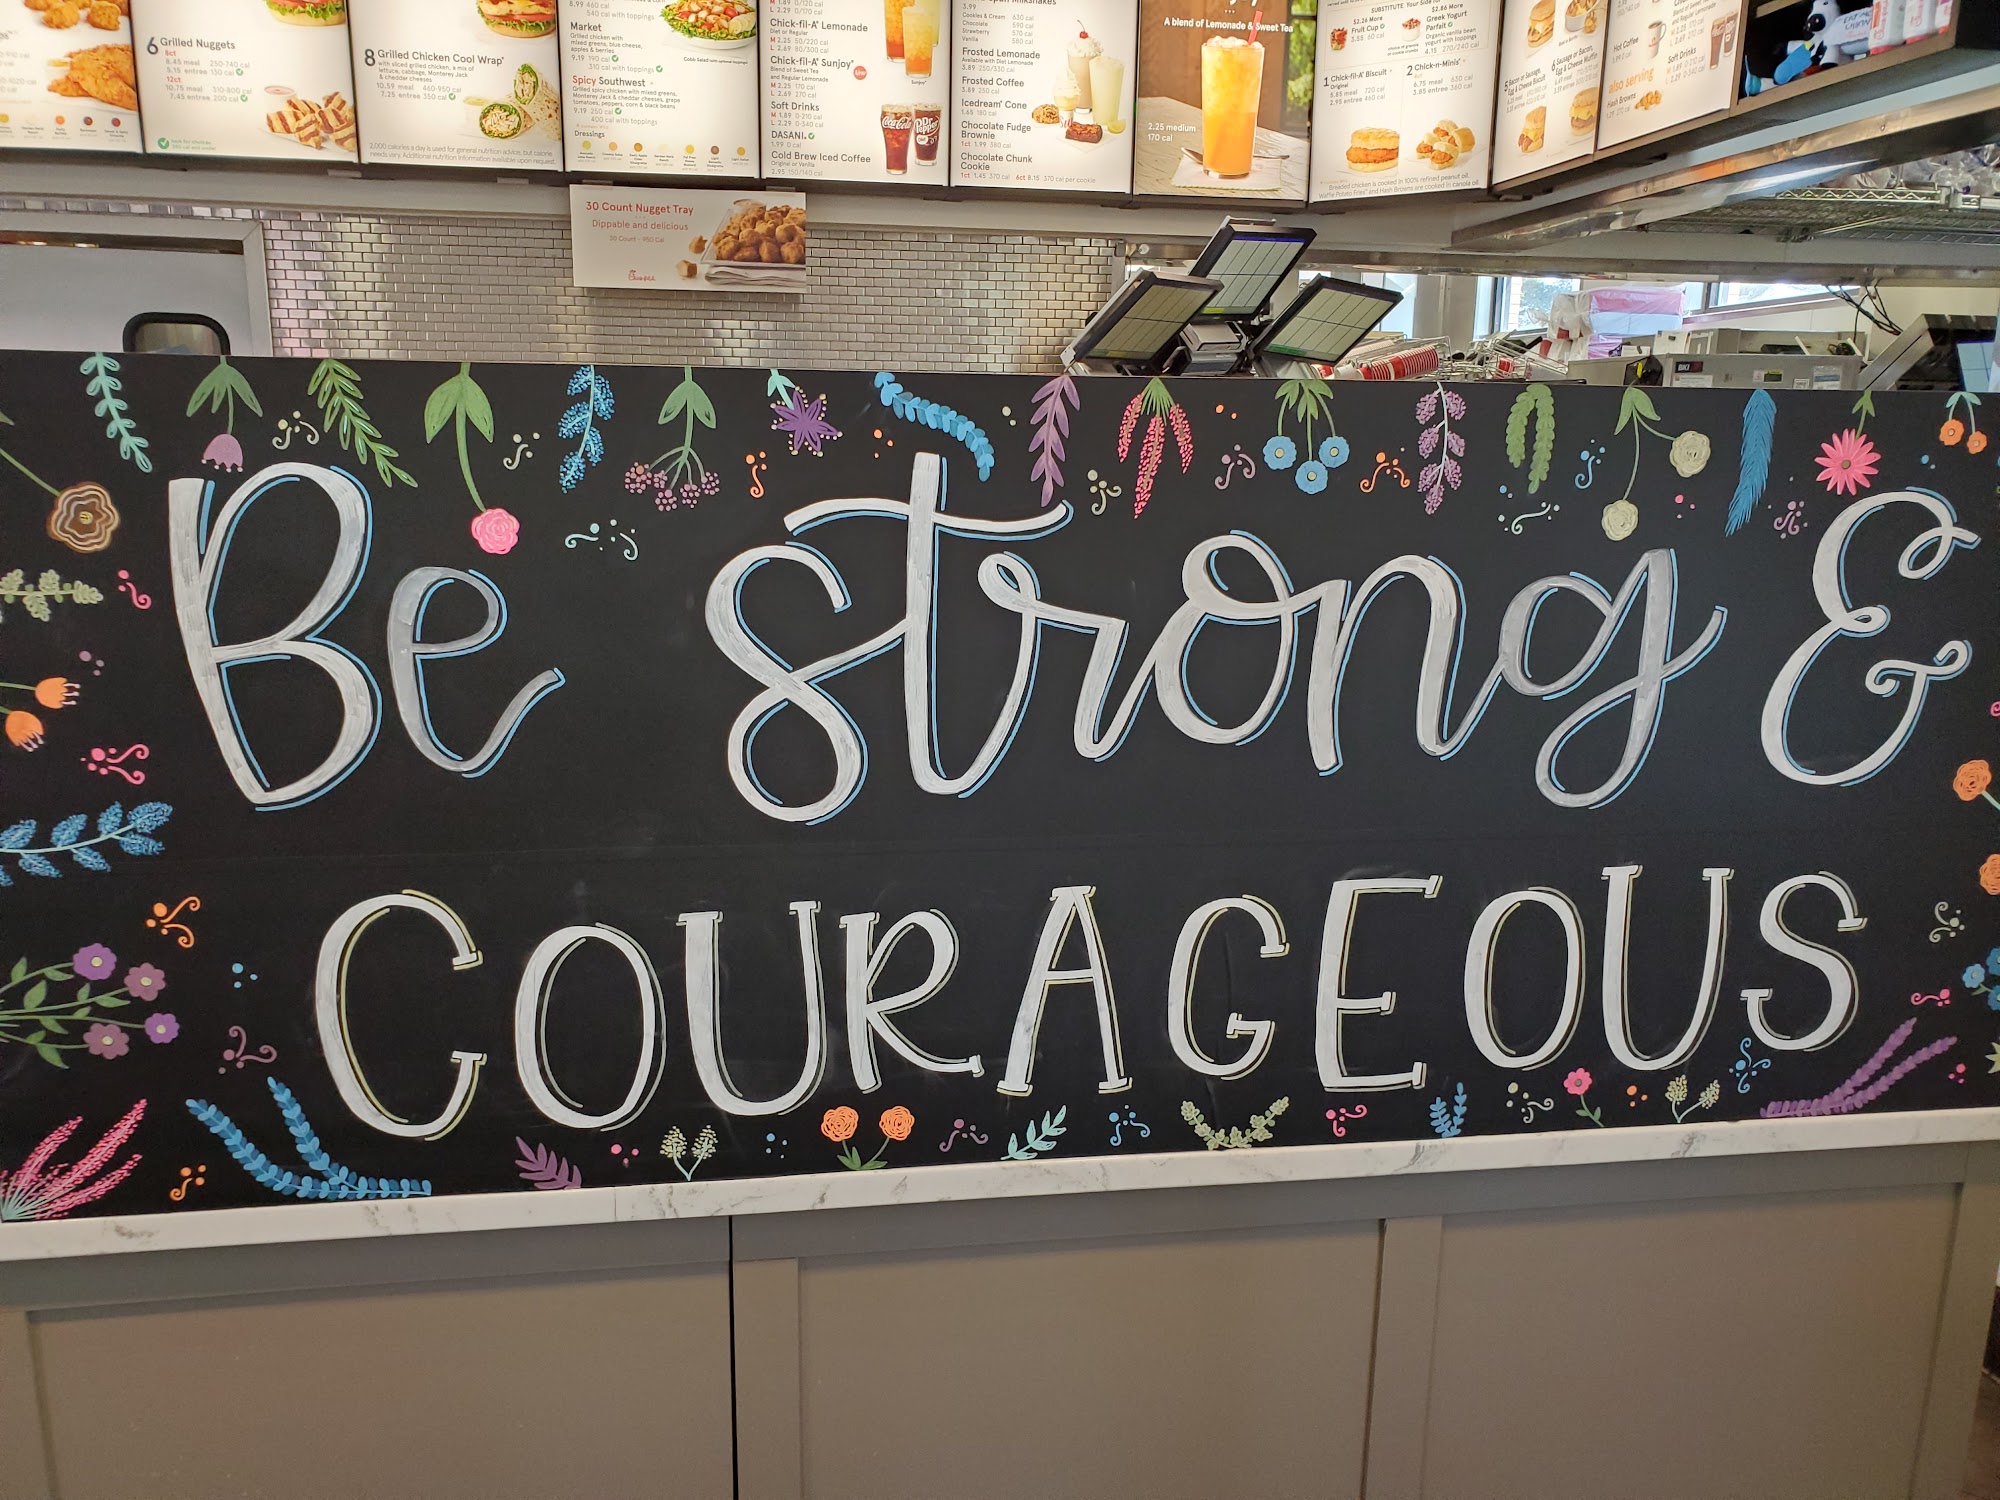 6 Grilled Nuggets
8ct
8.45 meal 250-740 cal
5.15 entree 130 cal
12ct
10.75 meal 310-800 cal
7.45 entree 200 cal
8 Grilled Chicken Cool Wrap®
with sliced grilled chicken, a mix of
lettuce, cabbage, Monterey Jack
& cheddar cheeses
10.59 meal 460-950 cal
7.25 entree 350 cal
2,000 calories a day is used for general nutrition advice, but calorie
needs vary. Additional nutrition information available upon request.
540 cal with toppings
Market
Grilled chicken with
mixed greens, blue cheese,
apples & berries
9.19 190 cal
310 cal with toppings
Spicy Southwest
Grilled spicy chicken with mixed greens,
Monterey Jack & cheddar cheeses, grape
tomatoes, peppers, corn & black beans
9.19 250 cal
400 cal with toppings
Dressings
L 2.29 0/170 cal
Chick-fil-A® Lemonade
Diet or Regular
M 2.25 50/220 cal
L 2.69 80/300 cal
Chick-fil-A® Sunjoy®
Blend of Sweet Tea
and Regular Lemonade
M 2.25 170 cal
L 2.69 270 cal
Soft Drinks
M 1.89 0-210 cal
L 2.29 0-340 cal
DASANI®
1.99 0 cal
Cold Brew Iced Coffee
Original or Vanilla
2.95 150/140 cal
Coca-Cola
Dr Pepper
3.99
Cookies & Cream 630 cal
Chocolate 590 cal
Strawberry 570 cal
Vanilla 580 cal
Frosted Lemonade
Available with Diet Lemonade
3.89 250/330 cal
Frosted Coffee
3.89 250 cal
Icedream® Cone
1.65 180 cal
Chocolate Fudge
Brownie
1ct 1.99 380 cal
Chocolate Chunk
Cookie
1ct 1.45 370 cal 6ct 8.15 370 cal per cookie
A blend of Lemonade & Sweet Tea
2.25 medium
170 cal
SUBSTITUTE Your Side for
$2.26 More
Fruit Cup
3.55 60 cal
$2.86 More
Greek Yogurt
Parfait
Organic vanilla bean
yogurt with toppings
4.15 270/240 cal
1 Chick-fil-A® Biscuit
Original
5.85 meal 720 cal
2.95 entree 460 cal
2 Chick-n-Minis®
4ct
6.75 meal 630 cal
3.85 entree 360 cal
Breaded chicken is cooked in 100% refined peanut oil.
Waffle Potato Fries® and Hash Browns are cooked in canola oil
Hot Coffee
also serving
Hash Browns
Soft Drinks
30 Count Nugget Tray
Dippable and delicious
30 Count - 950 Cal
Chick-fil-A
BKI
Be strong &
COURAGEOUS